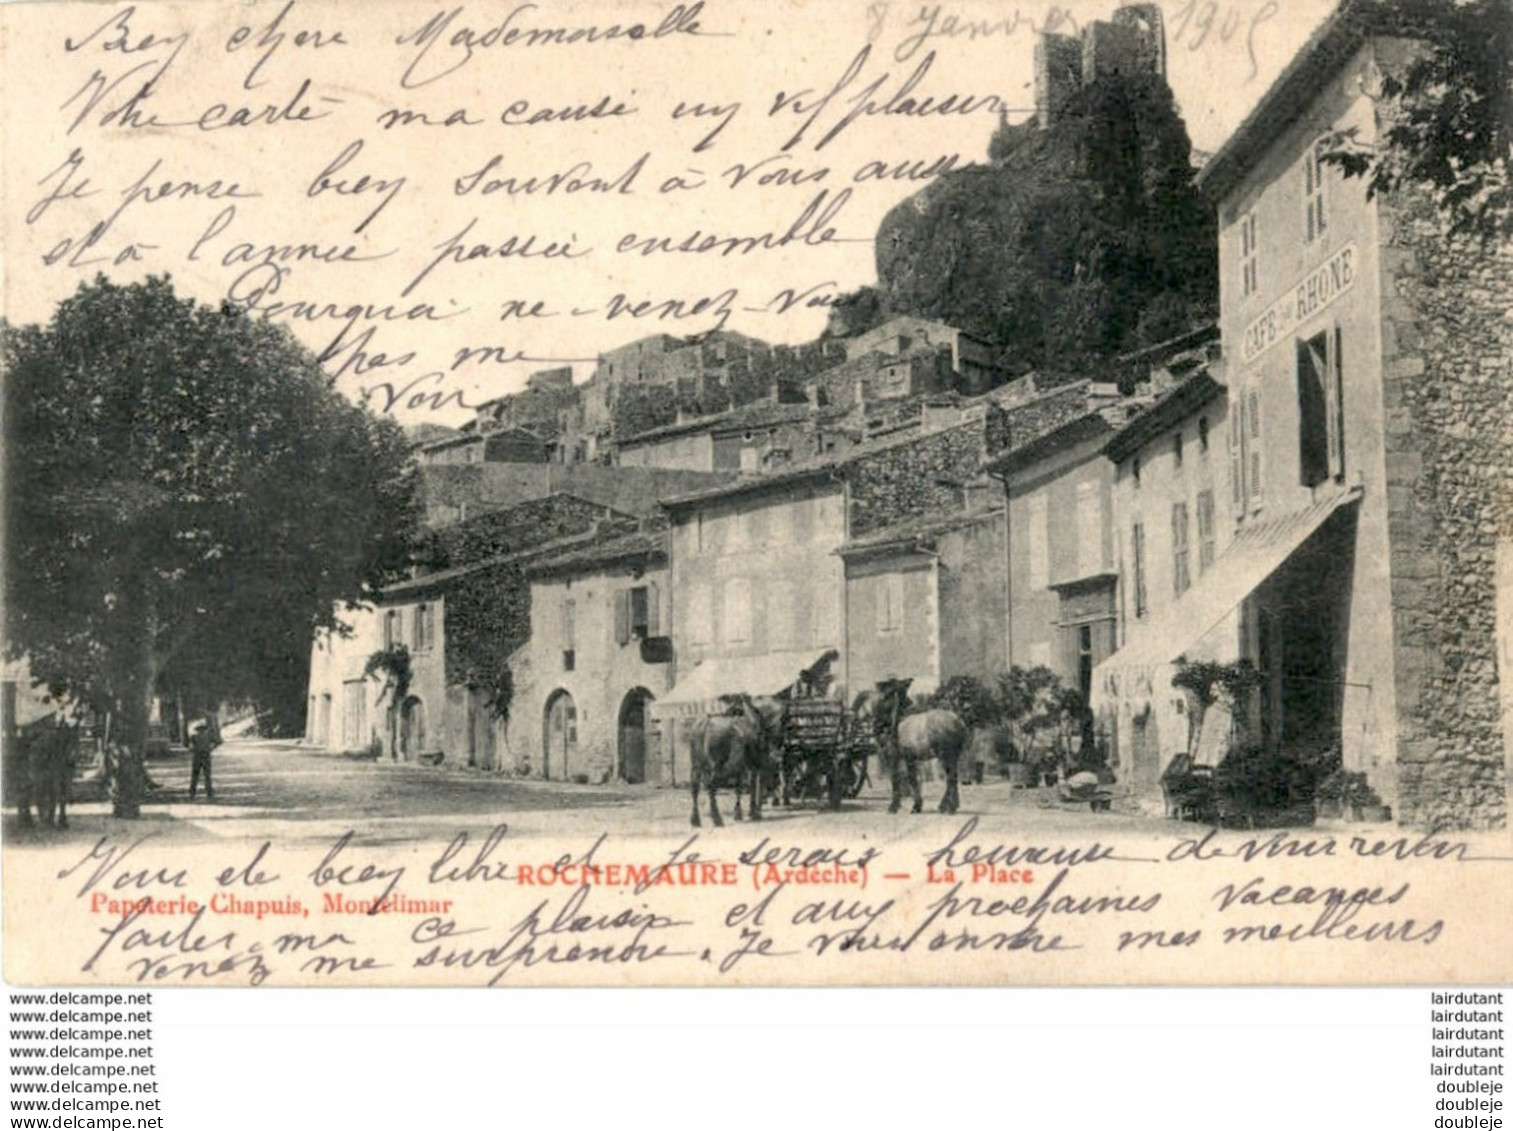 8 Janvier 1905
Bien chère Mademoiselle
Votre carte m'a causé un vif plaisir
Je pense bien souvent à vous aussi
et à l'année passée ensemble
Pourquoi ne venez-vous
pas me
Voir
CAFE DU RHONE
ROCHEMAURE (Ardèche) — La Place
Papeterie Chapuis, Montélimar
Vous de bien libre et je serais heureuse de vous revoir
faites-ma ce plaisir et aux prochaines vacances
venez me surprendre. Je vous envoie mes meilleurs
www.delcampe.net
www.delcampe.net
www.delcampe.net
www.delcampe.net
www.delcampe.net
www.delcampe.net
www.delcampe.net
www.delcampe.net
lairdutant
lairdutant
lairdutant
lairdutant
lairdutant
doubleje
doubleje
doubleje